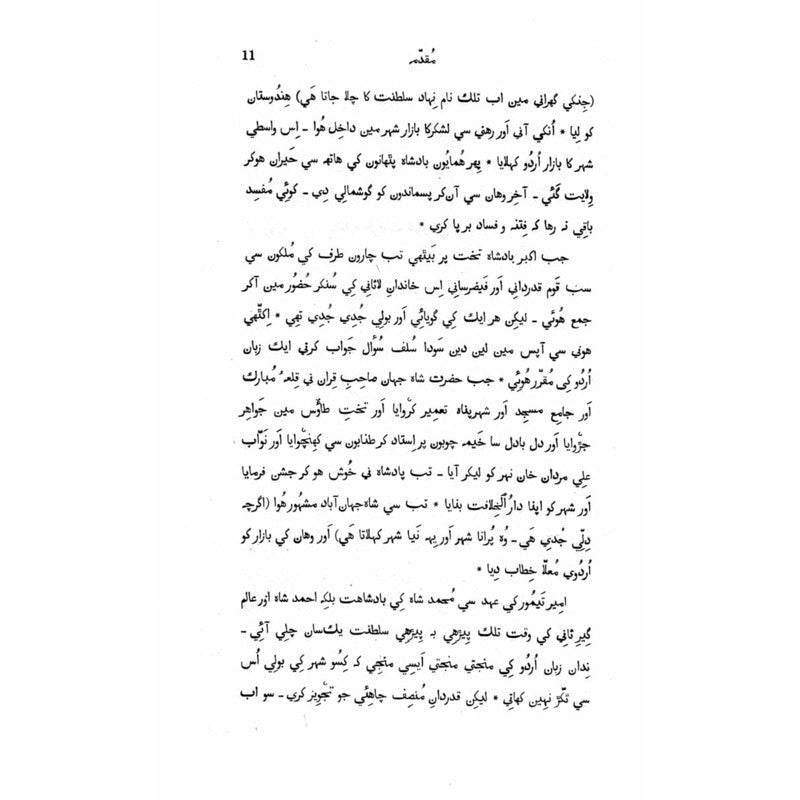 مُقدّمہ 11
(جِنکي گھراني مين اب تلك نام نِہاد سلطنت کا چلا جاتا ھَي) ھِندُوستان
کو لِيا * اُنکي آني اَور رھني سي لشکر کا بازار شہر مين داخِل ھُوا ـ اِس واسطي
شہر کا بازار اُردُو کہلايا * پِھر ھُمايُون بادشاہ پٹھانون کي ھاتھ سي حَيران ھوکر
وِلايت گئَي ـ آخِر وھان سي آن کر پسماندون کو گوشمالي دِي ـ کوئِي مُفسِد
باقِي نہ رھا کہ فِتنہ و فساد برپا کري *
جب اکبر بادشاہ تخت پر بَيٹھي تب چارون طرف کي مُلکون سي
سب قَوم قدردانِي اَور فَيضرسانِي اِس خاندانِ لاثانِي کِي سُنکر حُضُور مين آکر
جمع ھُوئي ـ ليکِن ھر ايك کِي گويائِي اَور بولِي جُدِي جُدِي تھِي * اِکٹّھي
ھوني سي آپس مين لين دين سَودا سُلف سُؤال جواب کرتي ايك زبان
اُردُو کی مُقرّر ھُوئِي * جب حضرت شاہ جہان صاحِبِ قِران ني قِلعہٴ مُبارك
اَور جامِع مسجِد اَور شہرپناہ تعمِير کروايا اَور تختِ طاؤس مين جَواھِر
جڑوايا اَور دل بادل سا خَيمہ چوبون پر اِستاد کر طنابون سي کھِنچوايا اَور نَوّاب
علي مردان خان نہر کو ليکر آيا ـ تب پادشاہ ني خُوش ھو کر جشن فرمايا
اَور شہر کو اپنا دارُ الخِلافت بنايا * تب سي شاہ جہان آباد مشہُور ھُوا (اگرچہ
دِلّي جُدِي ھَي ـ وُہ پُرانا شہر اَور يِہہ نَيا شہر کہلاتا ھَي) اَور وھان کي بازار کو
اُردُوي مُعلّا خِطاب دِيا *
امِير تَيمُور کي عہد سي مُحمد شاہ کِي بادشاھت بلکِہ احمد شاہ اَور عالم
گِيرِ ثانِي کي وقت تلك پِيڑھِي بہ پِيڑھِي سلطنت يك سان چلِي آئِي ـ
نِدان زبان اُردُو کِي منجتي منجتي اَيسِي منجِي کہ کِسُو شہر کِي بولِي اُس
سي ٹکّر نہِين کھاتِي * ليکِن قدردانِ مُنصِف چاھِئي جو تجوِيز کري ـ سو اب